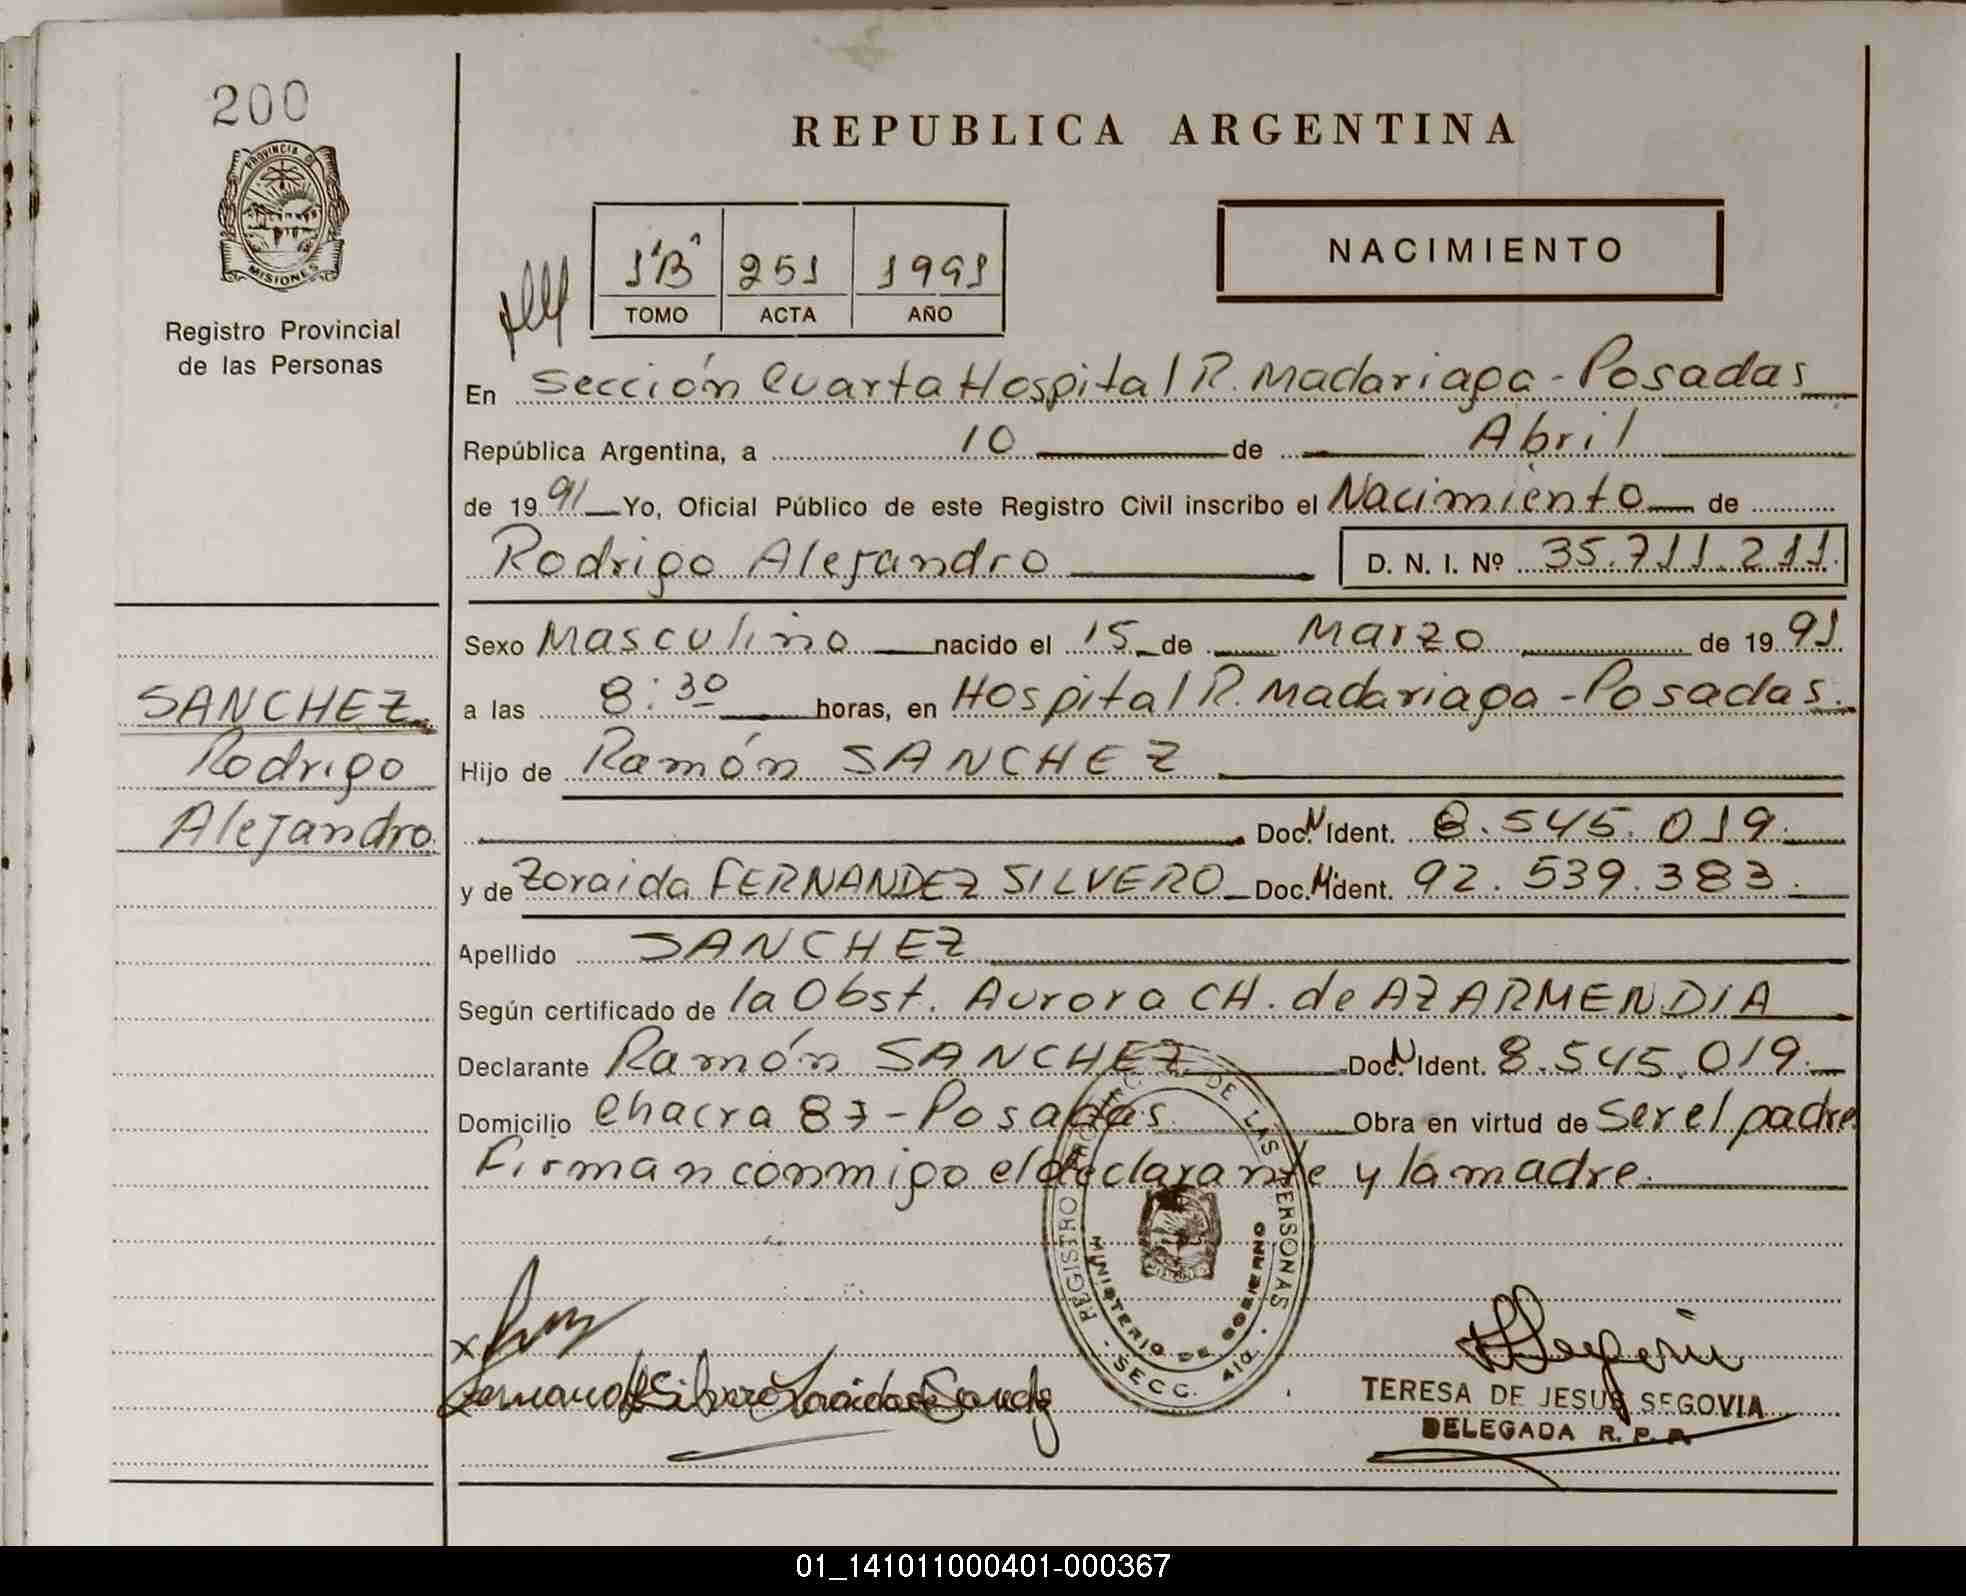 200
PROVINCIA DE
MISIONES
Registro Provincial
de las Personas
SANCHEZ
Rodrigo
Alejandro.
REPUBLICA ARGENTINA
1"B" 251 1991
TOMO ACTA AÑO
NACIMIENTO
En Sección Cuarta Hospital R. Madariaga - Posadas
República Argentina, a 10 de Abril
de 1991 Yo, Oficial Público de este Registro Civil inscribo el Nacimiento de
Rodrigo Alejandro D. N. I. Nº 35.711.211.
Sexo Masculino nacido el 15 de Marzo de 1991
a las 8:30 horas, en Hospital R. Madariaga - Posadas.
Hijo de Ramón SANCHEZ
Doc. N. Ident. 8.545.019.
y de Zoraida FERNANDEZ SILVERO Doc. N. Ident. 92.539.383.
Apellido SANCHEZ
Según certificado de la Obst. Aurora CH. de AZARMENDIA
Declarante Ramón SANCHEZ Doc. N. Ident. 8.545.019.
Domicilio Chacra 87 - Posadas Obra en virtud de Ser el padre
Firman conmigo el declarante y la madre.
REGISTRO DE LAS PERSONAS
MINISTERIO DE GOBIERNO
SECC. 4ta.
x
Fernandez Silvero Zoraida de Sanchez
TERESA DE JESUS SEGOVIA
DELEGADA R. P. P.
01_141011000401-000367